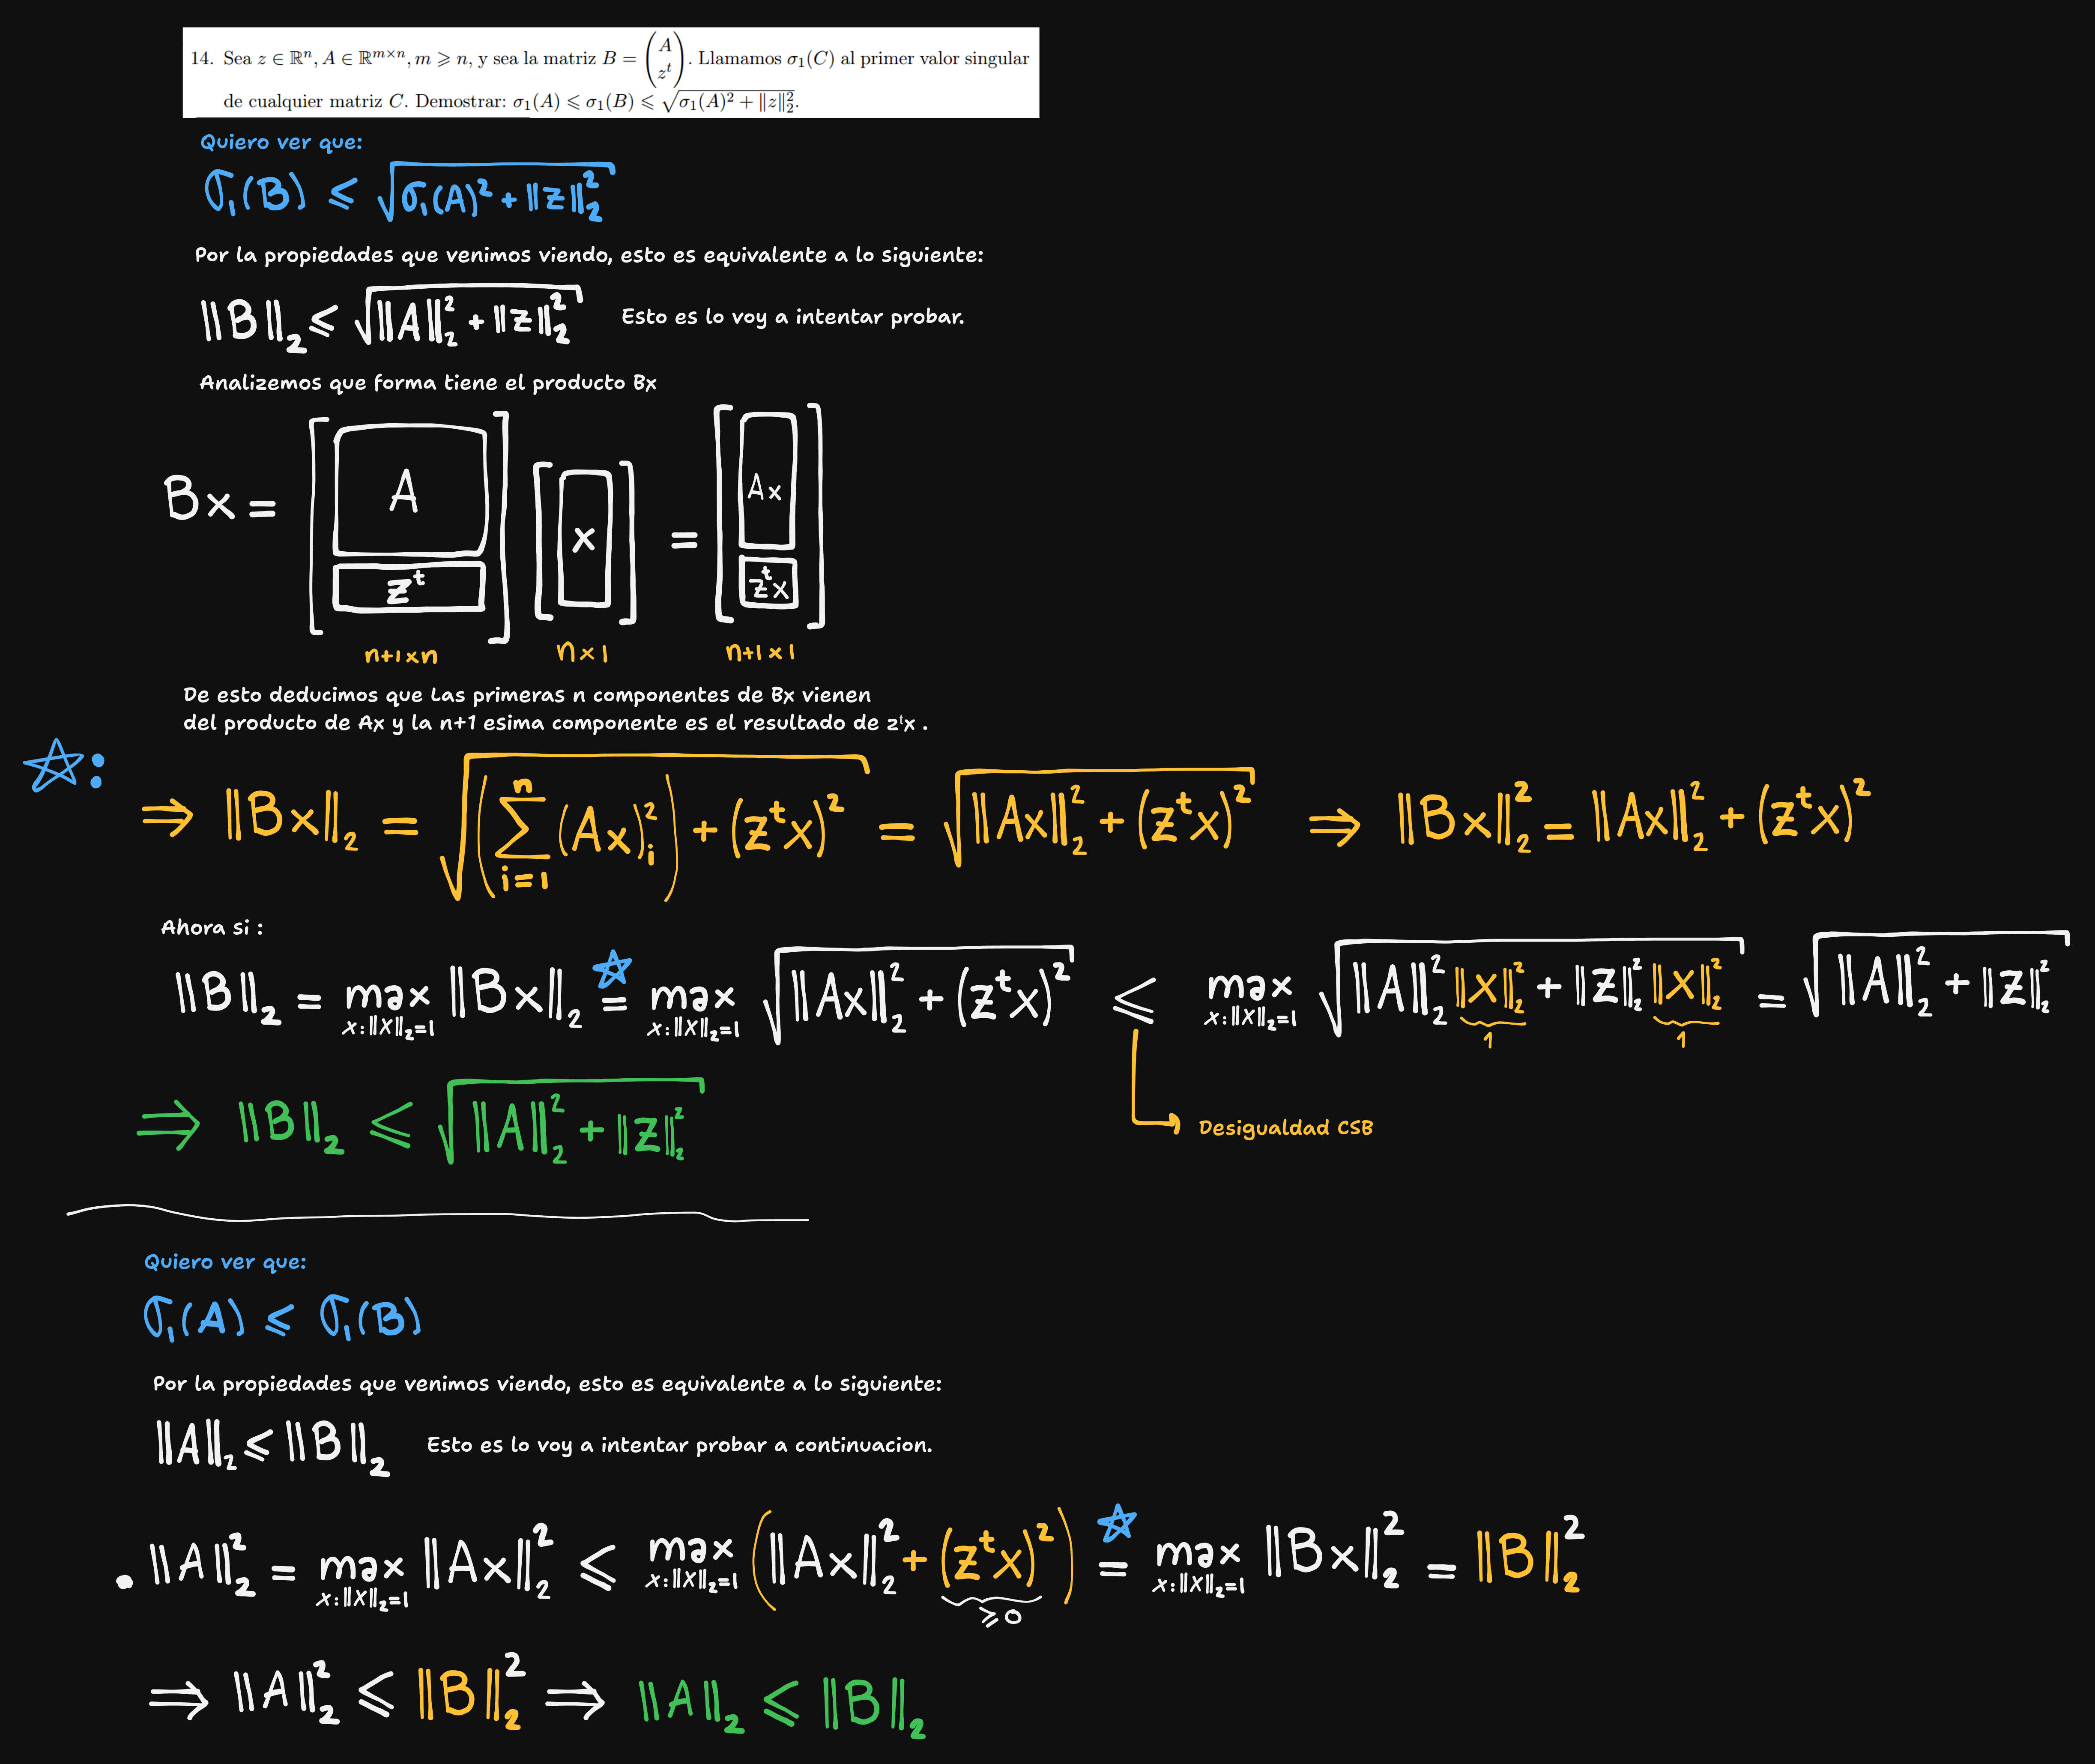 14. Sea z ∈ ℝⁿ, A ∈ ℝ^{m×n}, m ⩾ n, y sea la matriz B = (A / zᵗ). Llamamos σ₁(C) al primer valor singular
de cualquier matriz C. Demostrar: σ₁(A) ⩽ σ₁(B) ⩽ √(σ₁(A)² + ‖z‖₂²).
Quiero ver que:
σ₁(B) ⩽ √(σ₁(A)² + ‖z‖₂²)
Por la propiedades que venimos viendo, esto es equivalente a lo siguiente:
‖B‖₂ ⩽ √(‖A‖₂² + ‖z‖₂²) Esto es lo voy a intentar probar.
Analizemos que forma tiene el producto Bx
Bx = [A / zᵗ] [x] = [Ax / zᵗx]
n+1×n n×1 n+1×1
De esto deducimos que Las primeras n componentes de Bx vienen
del producto de Ax y la n+1 esima componente es el resultado de zᵗx .
☆:
⇒ ‖Bx‖₂ = √((∑_{i=1}^{n} (Ax)ᵢ²) + (zᵗx)²) = √(‖Ax‖₂² + (zᵗx)²) ⇒ ‖Bx‖₂² = ‖Ax‖₂² + (zᵗx)²
Ahora si :
‖B‖₂ = max_{x:‖x‖₂=1} ‖Bx‖₂ =☆ max_{x:‖x‖₂=1} √(‖Ax‖₂² + (zᵗx)²) ⩽ max_{x:‖x‖₂=1} √(‖A‖₂² ‖x‖₂² + ‖z‖₂² ‖x‖₂²) = √(‖A‖₂² + ‖z‖₂²)
1 1
⇒ ‖B‖₂ ⩽ √(‖A‖₂² + ‖z‖₂²)
Desigualdad CSB
Quiero ver que:
σ₁(A) ⩽ σ₁(B)
Por la propiedades que venimos viendo, esto es equivalente a lo siguiente:
‖A‖₂ ⩽ ‖B‖₂ Esto es lo voy a intentar probar a continuacion.
• ‖A‖₂² = max_{x:‖x‖₂=1} ‖Ax‖₂² ⩽ max_{x:‖x‖₂=1} (‖Ax‖₂² + (zᵗx)²) =☆ max_{x:‖x‖₂=1} ‖Bx‖₂² = ‖B‖₂²
⩾ 0
⇒ ‖A‖₂² ⩽ ‖B‖₂² ⇒ ‖A‖₂ ⩽ ‖B‖₂